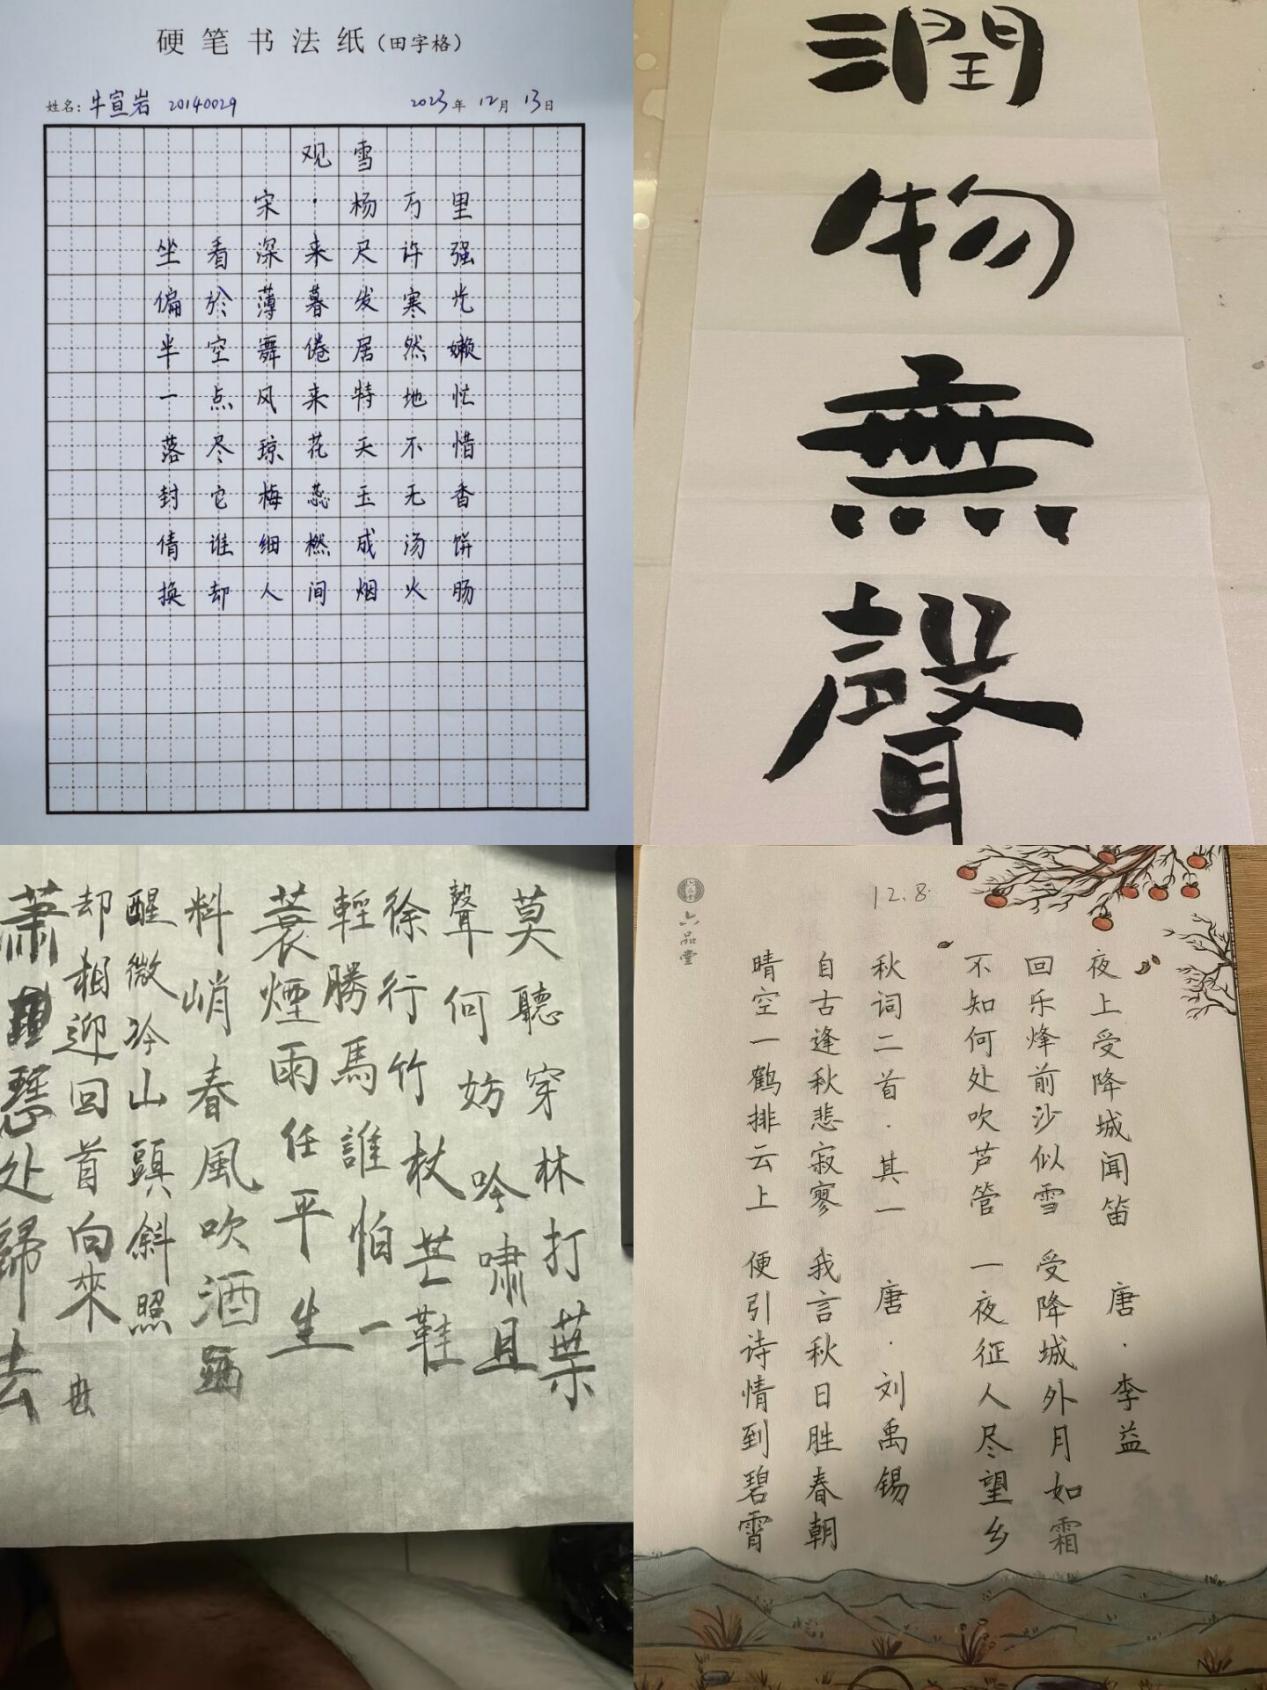 硬笔书法纸(田字格)
姓名: 牛宣岩 20140029 2023年12月13日
观雪
宋·杨万里
坐看深来尺许强
偏於薄暮发寒光
半空舞倦居然嬾
一点风来特地忙
落尽琼花天不惜
封它梅蕊玉无香
倩谁细撚成汤饼
换却人间烟火肠
潤物無聲
莫聽穿林打葉
聲何妨吟嘯且
徐行竹杖芒鞋
輕勝馬誰怕一
蓑煙雨任平生
料峭春風吹酒
醒微冷山頭斜照
却相迎回首向來
蕭瑟处歸去
六品堂
12.8.
夜上受降城闻笛 唐·李益
回乐烽前沙似雪 受降城外月如霜
不知何处吹芦管 一夜征人尽望乡
秋词二首·其一 唐·刘禹锡
自古逢秋悲寂寥 我言秋日胜春朝
晴空一鹤排云上 便引诗情到碧霄